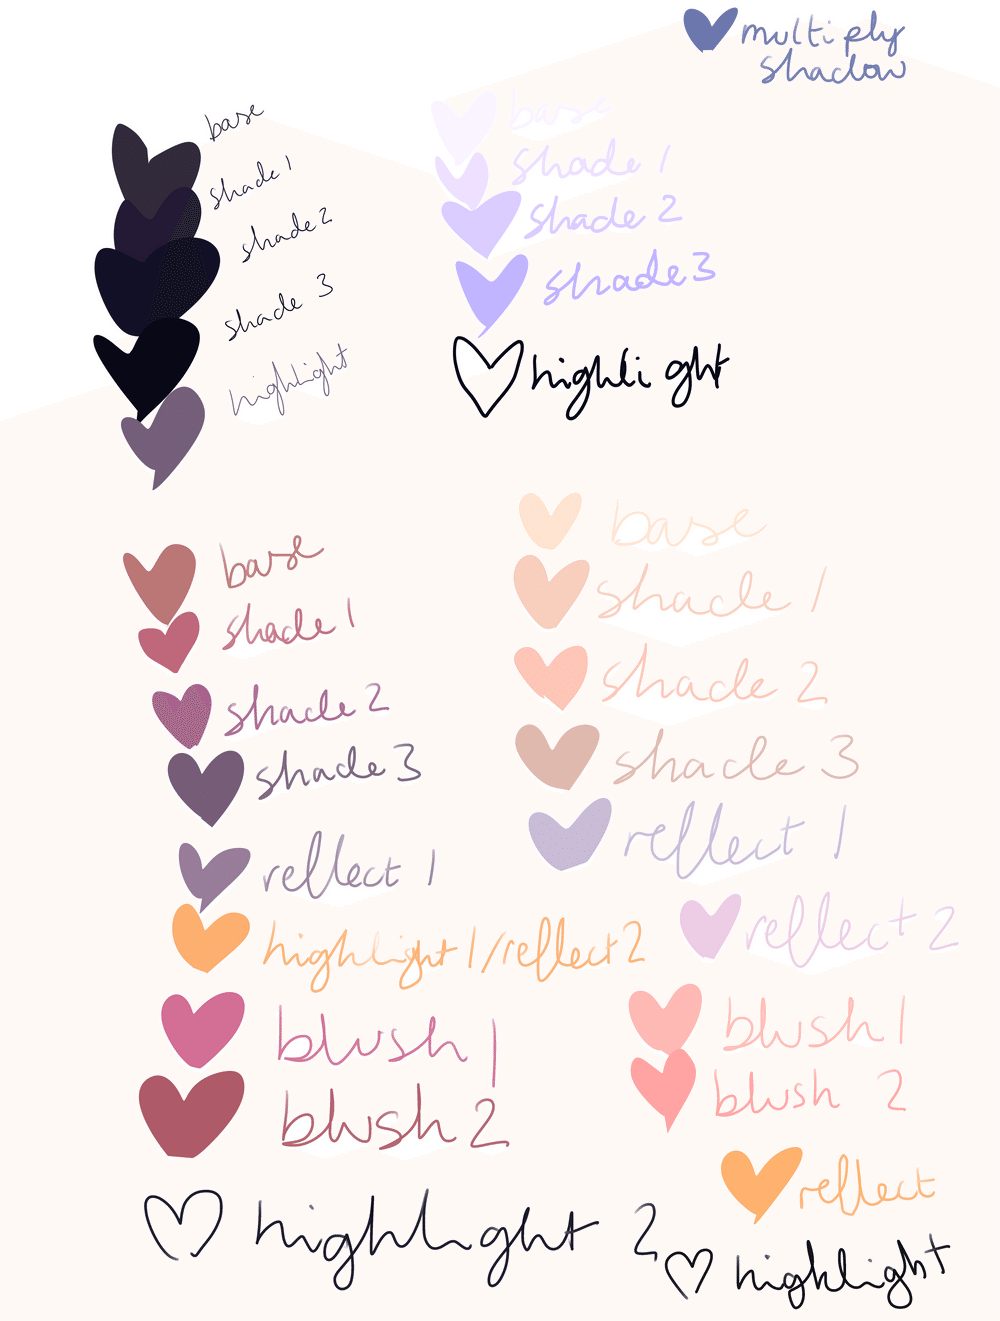 multiply
shadow
base
shade 1
shade 2
shade 3
highlight
base
shade 1
shade 2
shade 3
highlight
base
shade 1
shade 2
shade 3
reflect 1
highlight 1/reflect 2
blush 1
blush 2
highlight 2
base
shade 1
shade 2
shade 3
reflect 1
reflect 2
blush 1
blush 2
reflect
highlight